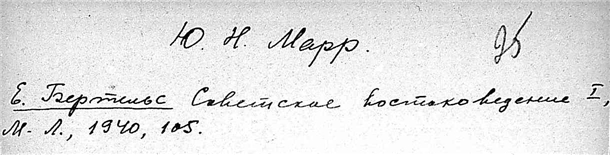 Ю. Н. Марр.
Е. Бертельс Советское востоковедение I,
М.-Л., 1940, 105.